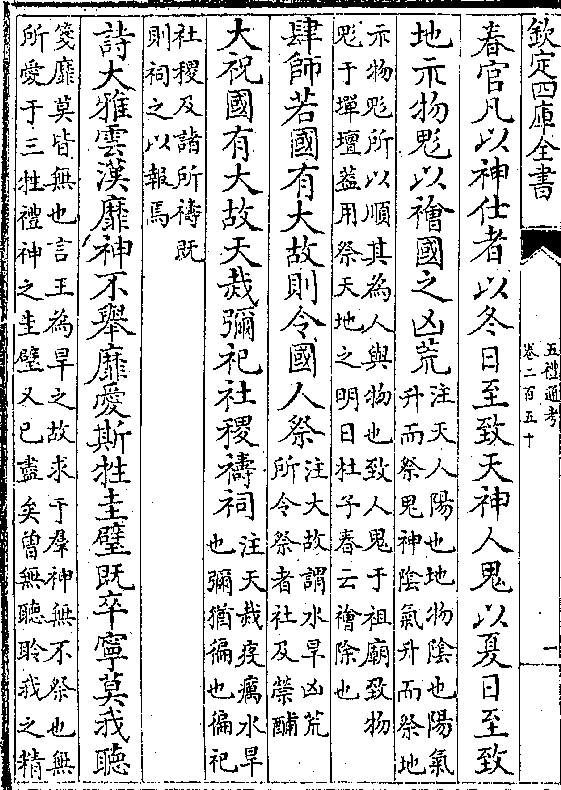 欽定四庫全書
五禮通考
卷二百五十
一
春官凡以神仕者以冬日至致天神人鬼以夏日至致
地示物鬽以禬國之凶荒
注天人陽也地物陰也陽氣
升而祭鬼神陰氣升而祭地
示物鬽所以順其為人與物也致人鬼于祖廟致物
鬽于墠壇葢用祭天地之明日杜子春云禬除也
肆師若國有大故則令國人祭
注大故謂水旱凶荒
所令祭者社及禜酺
大祝國有大故天烖彌祀社稷禱祠
注天烖疫癘水旱
也彌猶徧也徧祀
社稷及諸所禱既
則祠之以報焉
詩大雅雲漢靡神不舉靡愛斯牲圭璧既卒寧莫我聽
箋靡莫皆無也言王為旱之故求于羣神無不祭也無
所愛于三牲禮神之圭璧又已盡矣曾無聽聆我之精